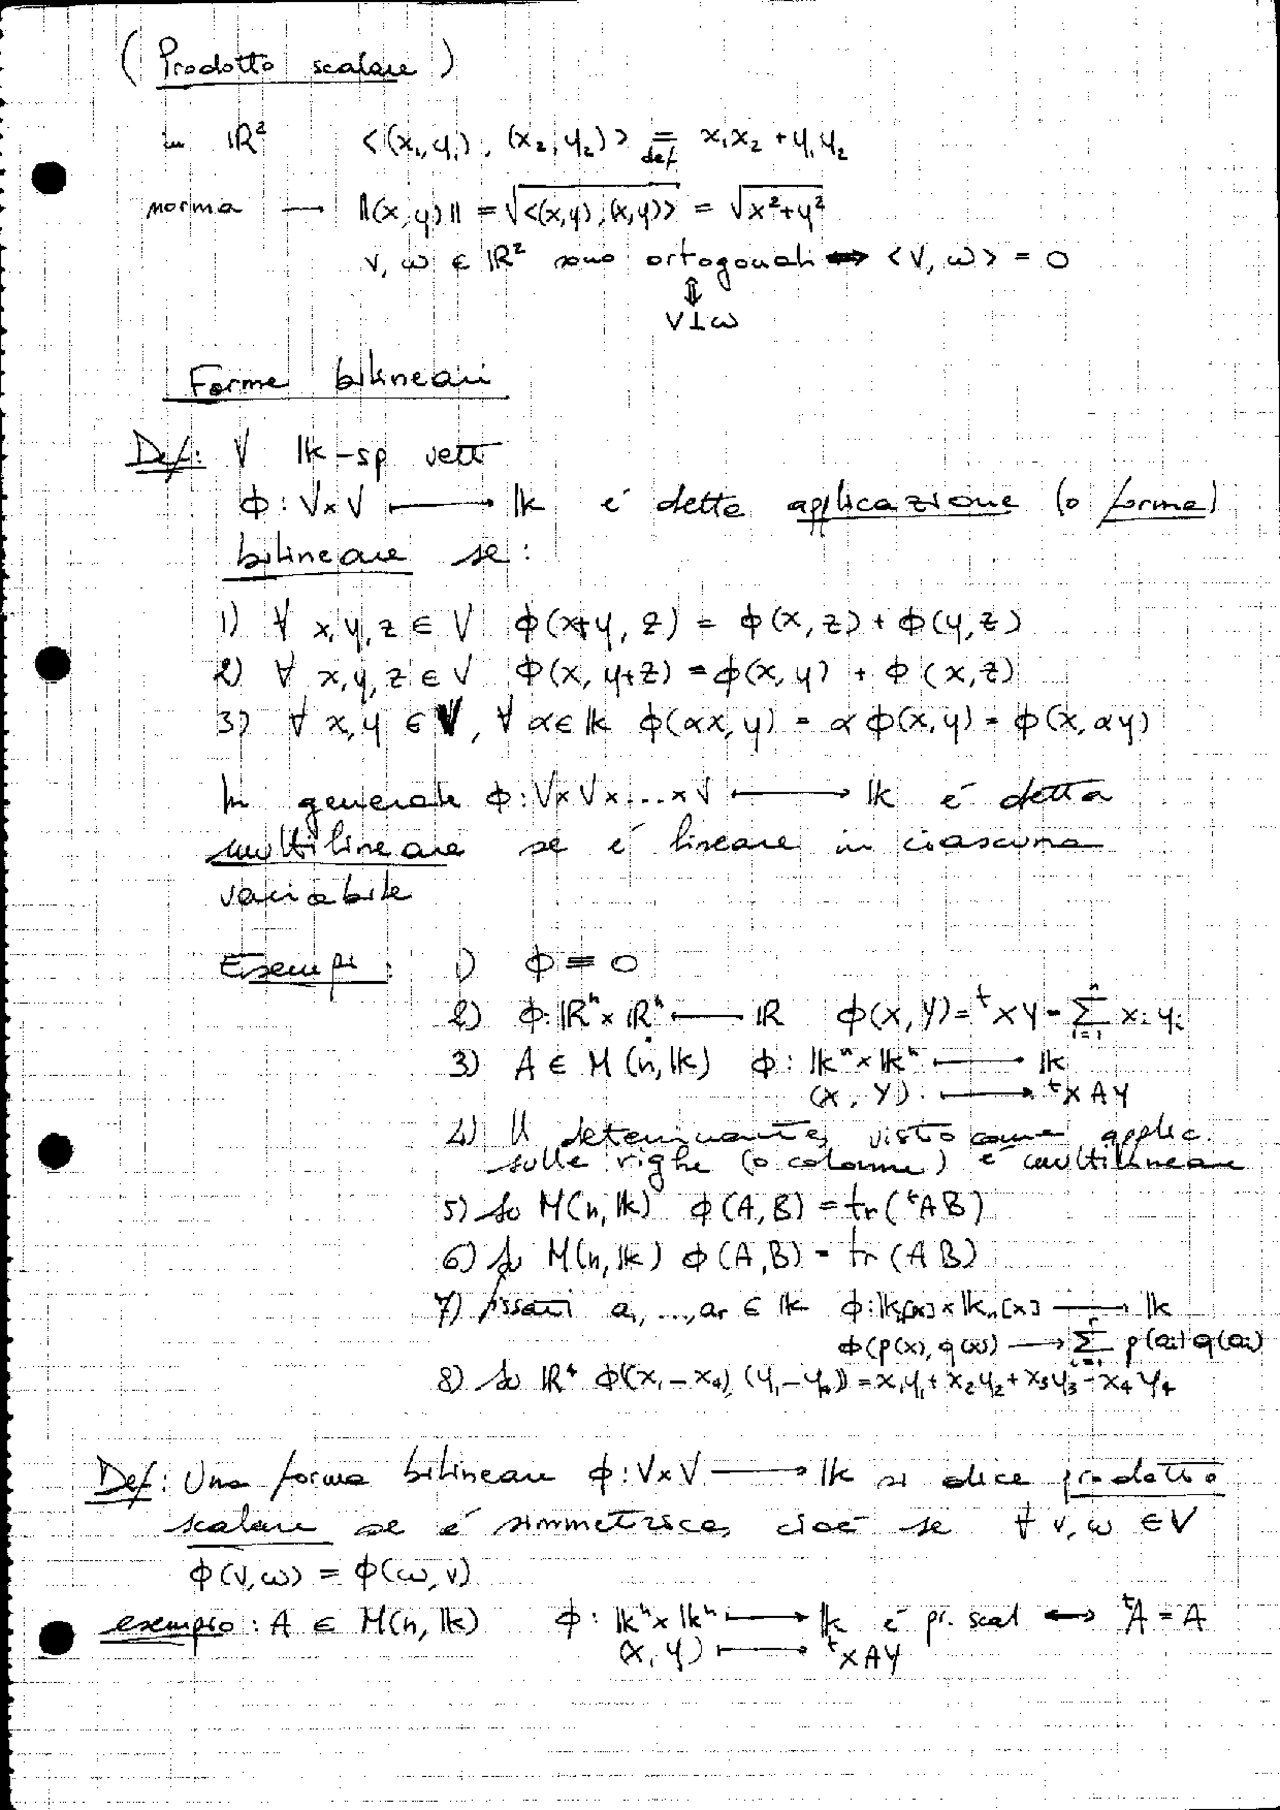 ( Prodotto scalare )
in ℝ² <(x₁,y₁), (x₂,y₂)> =def x₁x₂ + y₁y₂
norma → ‖(x,y)‖ = √<(x,y),(x,y)> = √x²+y²
v, ω ∈ ℝ² sono ortogonali ⇔ <v, ω> = 0
⇕
v⊥ω
Forme bilineari
Def: V 𝕜-sp vett
ϕ: V×V ↦ 𝕜 é detta applicazione (o forma)
bilineare se:
1) ∀ x,y,z ∈ V ϕ(x+y, z) = ϕ(x,z) + ϕ(y,z)
2) ∀ x,y,z ∈ V ϕ(x, y+z) = ϕ(x,y) + ϕ(x,z)
3) ∀ x,y ∈ V, ∀ α∈𝕜 ϕ(αx,y) = α ϕ(x,y) = ϕ(x,αy)
In generale ϕ: V×V×...×V ↦ 𝕜 é detta
multilineare se é lineare in ciascuna
variabile
Esempi: 1) ϕ ≡ 0
2) ϕ: ℝⁿ×ℝⁿ ↦ ℝ ϕ(X,Y) = ᵗXY = ∑ⁿᵢ₌₁ xᵢyᵢ
3) A ∈ M(n,𝕜) ϕ: 𝕜ⁿ×𝕜ⁿ ↦ 𝕜
(X, Y) ↦ ᵗXAY
4) Il determinante, visto come applic.
sulle righe (o colonne) é multilineare
5) Su M(n,𝕜) ϕ(A,B) = tr(ᵗAB)
6) Su M(n,𝕜) ϕ(A,B) = tr(AB)
7) fissati a₁,...,aᵣ ∈ 𝕜 ϕ: 𝕜ₙ[x]×𝕜ₙ[x] → 𝕜
ϕ(p(x), q(x)) → ∑ʳᵢ₌₁ p(aᵢ)q(aᵢ)
8) Su ℝ⁴ ϕ((x₁–x₄),(y₁–y₄)) = x₁y₁ + x₂y₂ + x₃y₃ - x₄y₄
Def: Una forma bilineare ϕ: V×V → 𝕜 si dice prodotto
scalare se é simmetrica, cioé se ∀ v,ω ∈V
ϕ(v,ω) = ϕ(ω,v)
esempio: A ∈ M(n,𝕜) ϕ: 𝕜ⁿ×𝕜ⁿ ↦ 𝕜 é pr. scal ↔ ᵗA = A
(X,Y) ↦ ᵗXAY